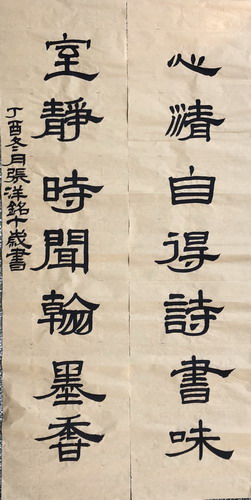 心清自得詩書味
室靜時聞翰墨香
丁酉冬月張洋銘十歲書